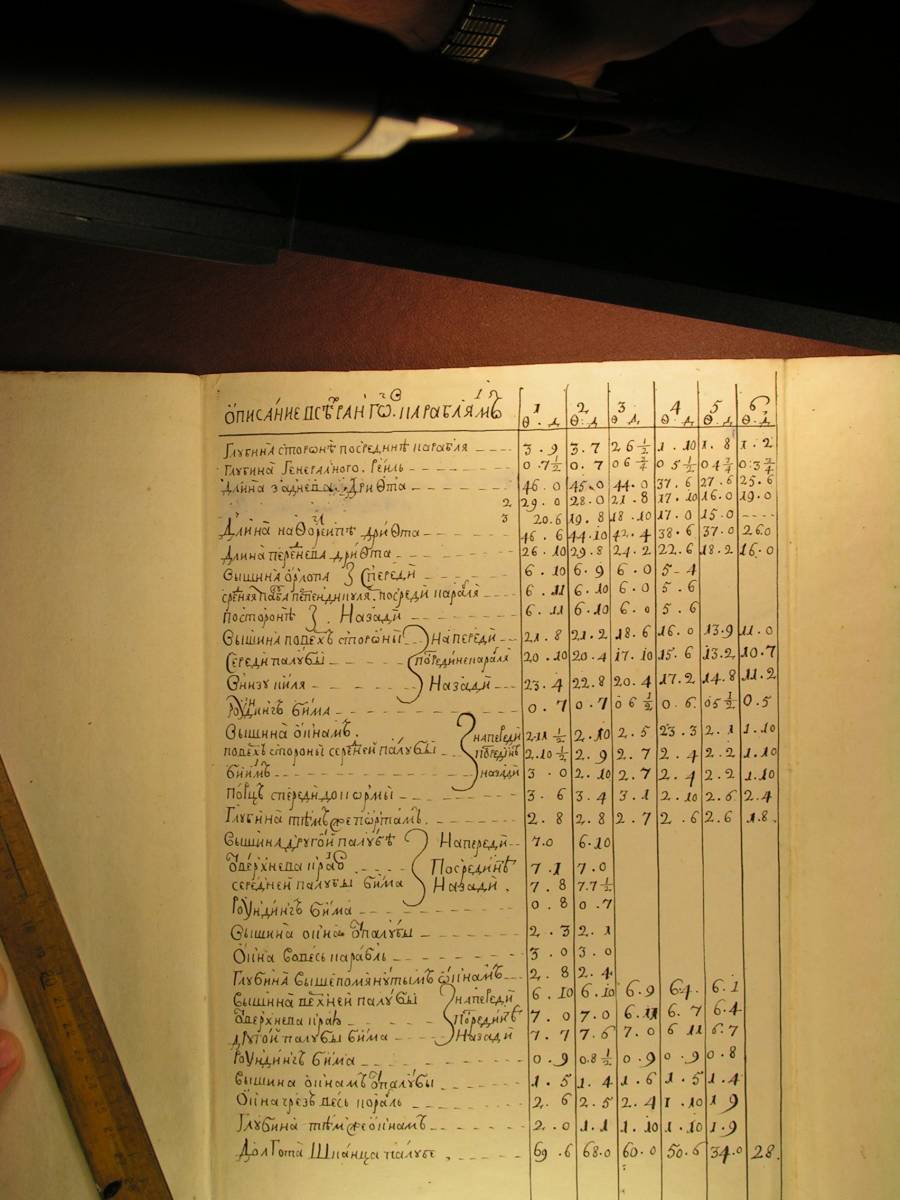 ОПИСАНИЕ ВСѢ РАНГОВ КАРАБЛЯМЪ 1 2 3 4 5 6
Ѳ. Д Ѳ. Д Ѳ. Д Ѳ. Д Ѳ. Д Ѳ. Д
Глубина сторонѣ посрединѣ карабля 3.9 3.7 2 6 1/2 1.10 1.8 1.2
Глубина Генералного. Рейль 0.7 1/2 0.7 0 6 3/4 0 5 1/2 0 4 3/4 0:3 3/4
Длина заднева. Дриѳта 46.0 45.0 44.0 37.6 27.6 25.6
2 29.0 28.0 21.8 17.10 16.0 19.0
3 20.6 19.8 18.10 17.0 15.0
Длина на дриѳта 46.6 44.10 42.4 38.6 37.0 26.0
Длина перенева дриѳта 26.10 29.8 24.2 22.6 18.2 16.0
Вышина орлопа Спереди 6.10 6.9 6.0 5-4
посреди карабля 6.11 6.10 6.0 5.6
посторонѣ. Назади 6.11 6.10 6.0 5.6
Вышина стороны Напереди 21.8 21.2 18.6 16.0 13.9 11.0
Середи палубы 20.10 20.4 17.10 15.6 13.2 10.7
Внизу киля Назади 23.4 22.8 20.4 17.2 14.8 11.2
Роундингъ бима 0.7 0.7 0 6 1/2 0.6. 0 5 1/2 0.5
Вышина окнамъ. Напереди 2.11 1/2 2.10 2.5 23.3 2.1 1.10
стороны середней палубы Посрединѣ 2.10 1/2 2.9 2.7 2.4 2.2 1.10
бимъ Назади 3.0 2.10 2.7 2.4 2.2 1.10
спереди до кормы 3.6 3.4 3.1 2.10 2.6 2.4
Глубина тѣмъ же портамъ. 2.8 2.8 2.7 2.6 2.6 1.8.
Вышина другой палубѣ Напереди 7.0 6.10
Посрединѣ 7.1 7.0
середней палубы бима Назади. 7.8 7.7 1/2
Роундингъ бима 0.8 0.7
Вышина окна палубы 2.3 2.1
Окна карабль 3.0 3.0
Глубина вышепомянутымъ окнамъ 2.8 2.4
Вышина верхней палубы Напереди 6.10 6.10 6.9 64. 6.1
Посрединѣ 7.0 7.0 6.11 6.7 6.4
другой палубы бима Назади 7.7 7.6 7.0 6 11 6.7
Роундингъ бима 0.9 0.8 1/2 0.9 0.9 0.8
Вышина окнамъ палубы 1.5 1.4 1.6 1.5 1.4
Окна чрезъ весь корабль 2.6 2.5 2.4 1.10 1 9
Глубина тѣмъ же окнамъ 2.0 1.1 1.10 1.10 1.9
Долгота Шканца палубе, 69.6 68.0 60.0 50.6 34.0 28.